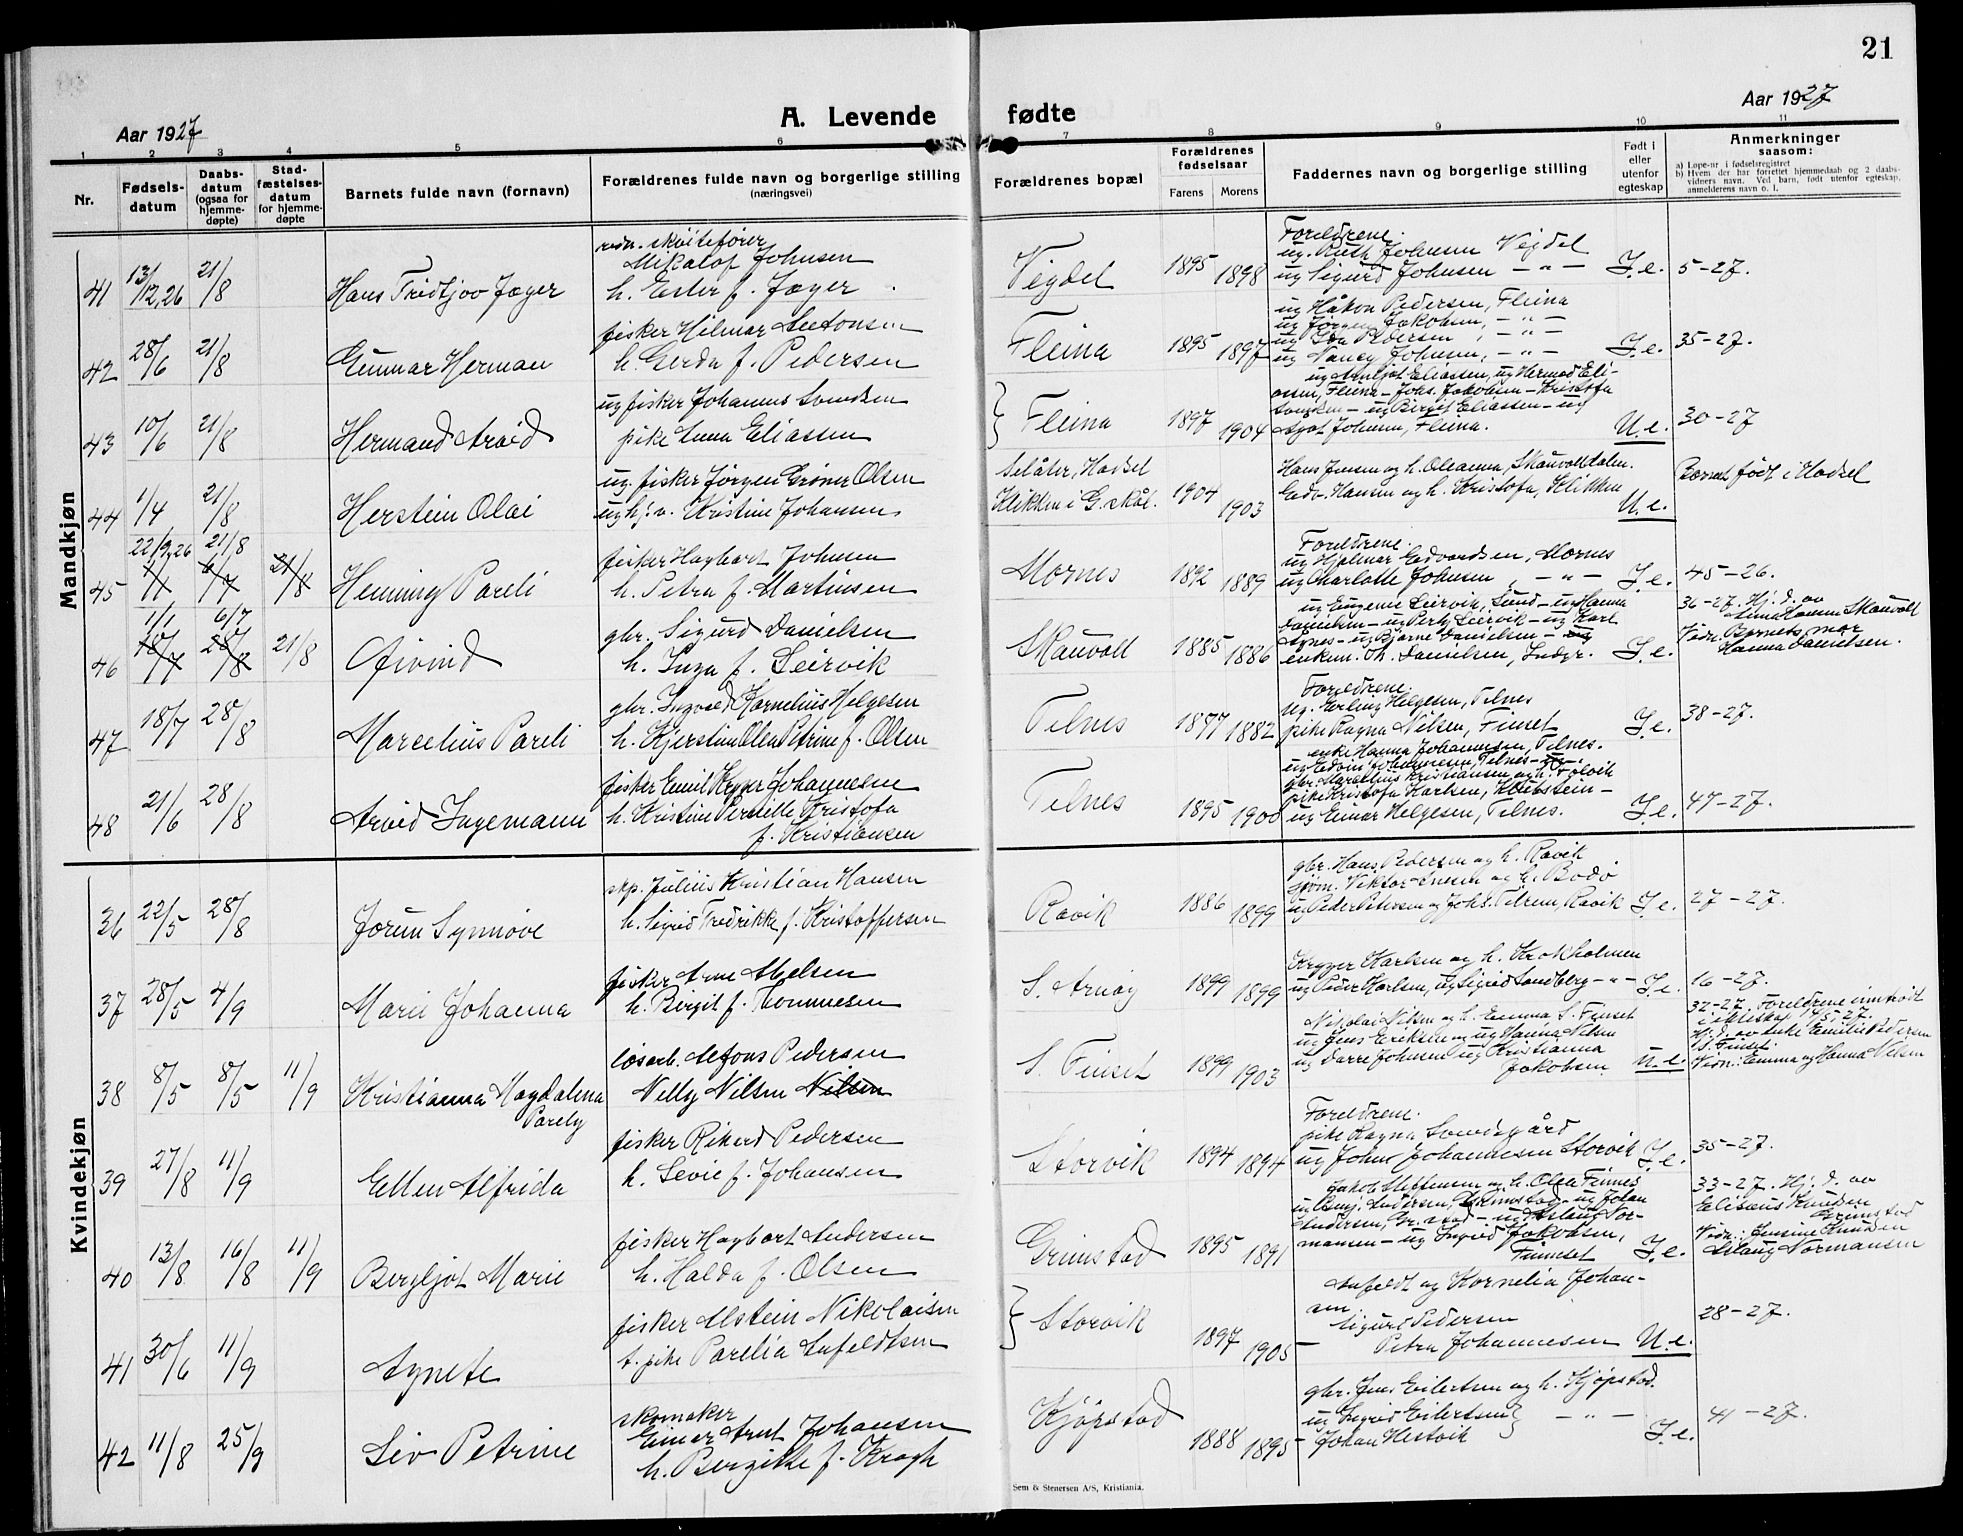 21
Aar 1927
A. Levende
fødte
Aar 1927
1
2
3
4
5
6
7
8
9
10
11
Nr.
Fødsels-
datum
Daabs-
datum
(ogsaa for
hjemme-
døpte)
Stad-
fæstelses-
datum
for hjemme-
døpte
Barnets fulde navn (fornavn)
Forældrenes fulde navn og borgerlige stilling
(næringsvei)
Forældrenes bopæl
Forældrenes
fødselsaar
Farens
Morens
Faddernes navn og borgerlige stilling
Født i
eller
utenfor
egteskap
Anmerkninger
saasom:
a) Løpe-nr i fødselsregistret
b) Hvem der har forrettet hjemmedaab og 2 daabs-
vidners navn. Ved barn, født utenfor egteskap,
anmelderens navn o. l.
Mandkjøn
41 13/12,26 21/8 Hans Fridtjov Jæger
redn. skøitefører
Mikalof Johnsen
h. Ester f. Jæger
Vegdel 1895 1898
Foreldrene.
ug. Ruth Johnsen Vegdel
ug Sigurd Johnsen — " —
I.e. 5-27.
42 28/6 21/8 Gunnar Herman
fisker Hilmar Antonsen
h. Gerda f. Pedersen
Fleina 1895 1897
ug Håkon Pedersen, Fleina
ug Jørgen Jakobsen, — " —
ug Ida Pedersen, — " —
ug Nancy Johnsen, — " —
I.e. 35-27.
43 10/6 21/8 Hermand Arvid
ug fisker Johannes Svendsen
pike Anna Eliassen
Fleina 1897 1904
ug Arnljot Eliassen, ug Hermod Eli-
assen, Fleina - Johs. Jakobsen - Kristofa
Svendsen - ug Birgit Eliassen - ug
Agot Johnsen, Fleina.
U.e. 30-27
44 1/4 21/8 Herstein Olai
ug. fisker Jørgen Grøner Olsen
ug hj. v. Kristine Johansen
Selåter, Hadsel
Klikken i G.skål. 1904 1903
Hans Jensen og h. Oleanna, Skauvolldalen.
Edv. Hansen og h. Kristofa, Klikken
U.e. Barnet født i Hadsel
45 22/9,26 21/8
1/1 6/7 21/8 Henning Pareli
fisker Hagbart Johnsen
h. Petra f. Martinsen
Mornes 1892 1889
Foreldrene.
ug Hjalmar Edvardsen, Mornes
ug Charlotte Johnsen, — " —
I.e. 45-26.
46 1/1 6/7
18/7 28/8 21/8 Øivind
gbr. Sigurd Danielsen
h. Inga f. Leirvik
Skauvoll 1885 1886
ug Eugenie Leirvik, Sund - ug Hanna
Danielsen - ug Perly Leirvik - ug Karl
Agnes - ug Bjarne Danielsen - ug
enkem. Th. Danielsen, Indgr.
I.e. 36-27. Hj. d. av
Anna Hansen Skauvoll
Vidn. Barnets mor
Hanna Danielsen.
47 18/7 28/8 Marcelius Pareli
gbr. Ingvald Kornelius Helgesen
h. Kjerstine Olea Petrine f. Olsen
Telnes 1877 1882
Foreldrene.
ug. Erling Helgesen, Telnes
pike Ragna Nilsen, Finset
I.e. 38-27.
48 21/6 28/8 Arvid Ingemann
fisker Emil Kryger Johannesen
h. Kristine Pernille Kristofa
f. Kristiansen
Telnes 1895 1900
enke Hanna Johannesen, Telnes.
ug Edvin Johannesen, Telnes
gbr. Marcelius Kristiansen og h.
pike Kristofa Karlsen,
ug Einar Helgesen, Telnes.
I.e. 47-27.
Kvindekjøn
36 22/5 28/8 Jorun Synnøve
skp. Julius Kristian Hansen
h. Sigrid Fredrikke f. Kristoffersen
Ravik 1886 1899
gbr. Hans Pedersen og h. Ravik
sjøm. Viktor Enesen og h. Bodø
ug Peder Petersen og Johs. Tilrem Ravik
I.e. 27-27.
37 28/5 4/9 Marie Johanna
fisker Arne Abelsen
h. Birgit f. Thommesen
S. Arnøy 1899 1899
Krygger Karlsen og h. Krokholmen
ug Peder Karlsen, ug Sigrid Sandberg — " —
I.e. 16-27.
38 8/5 8/5 11/9 Kristianna Magdalena
Parely
løsarb. Alfons Pedersen
Nelly Nilsen Nilsen
S. Finset 1899 1903
Nikolai Nilsen og h. Emma S. Finset
ug Jens Eriksen og ug Hanna Nilsen
ug Darre Johnsen ug Kristianna
Jakobsen
U.e. 32-27. Foreldrene inntrådt
i ekteskap 14/5 27.
Hj. d. av enke Emilie Pedersen
S. Finset.
Vidn.: Emma og Hanna Nilsen
39 27/8 11/9 Ellen Alfrida
fisker Rikard Pedersen
h. Levie f. Johansen
Storvik 1894 1894
Foreldrene.
pike Ragna Svendsgård
ug Johns Johannesen Storvik
I.e. 35-27.
40 13/8 16/8 11/9 Bergljot Marie
fisker Hagbart Andersen
h. Halda f. Olsen
Grimstad 1895 1891
Jakob Steffensen og h. Olea Finnes
ug Benj. Andersen, Grimstad - ug Johan
Andersen, Gr.stad - ug Aslaug Nor-
mansen - ug Ingrid Jakobsen,
Finnset
I.e. 33-27. Hj. d. av
Elisæus Knudsen
Grimstad
Vidn.: Jensine Knudsen
Aslaug Normansen
41 30/6 11/9 Agnete
fisker Alstein Nikolaisen
t. pike Parelia Anfeldtsen
Storvik 1897 1905
Anfeldt og Kornelia Johan-
sen
Sigurd Pedersen
Petra Johannesen
U.e. 28-27.
42 11/8 25/9 Liv Petrine
skomaker
Einar Arnt Johansen
h. Bergitte f. Krogh
Kjøpstad 1888 1895
gbr. Jens Eilertsen og h. Kjøpstad.
ug Ingrid Eilertsen — " —
Johan Hestvik
I.e. 41-27.
Sem & Stenersen A/S, Kristiania.